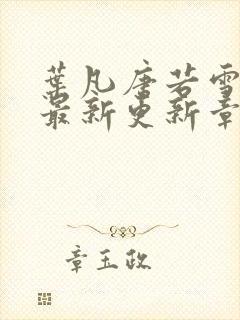 葉凡唐若雪
最新更新章
章玉政